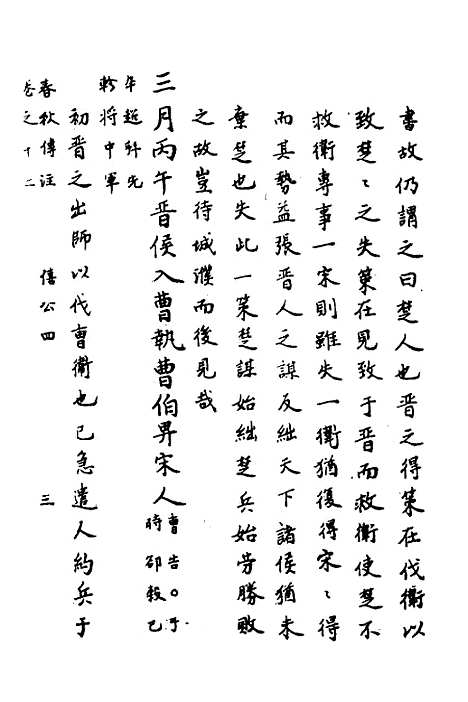 書故仍謂之曰楚人也晉之得策在伐衞以
致楚〻之失策在見致于晉而救衞使楚不
救衞專事一宋則雖失一衞猶復得宋〻得
而其勢益張晉人之謀反絀天下諸侯猶未
棄楚也失此一策楚謀始絀楚兵始勞勝敗
之故豈待城濮而後見哉
三月丙午晉侯入曹執曹伯畀宋人曹告〇于
時郤縠已
卒趙衰先
軫將中軍
初晉之出師以伐曹衞也已急遣人約兵于
春秋傳注 僖公四 三
卷之十二